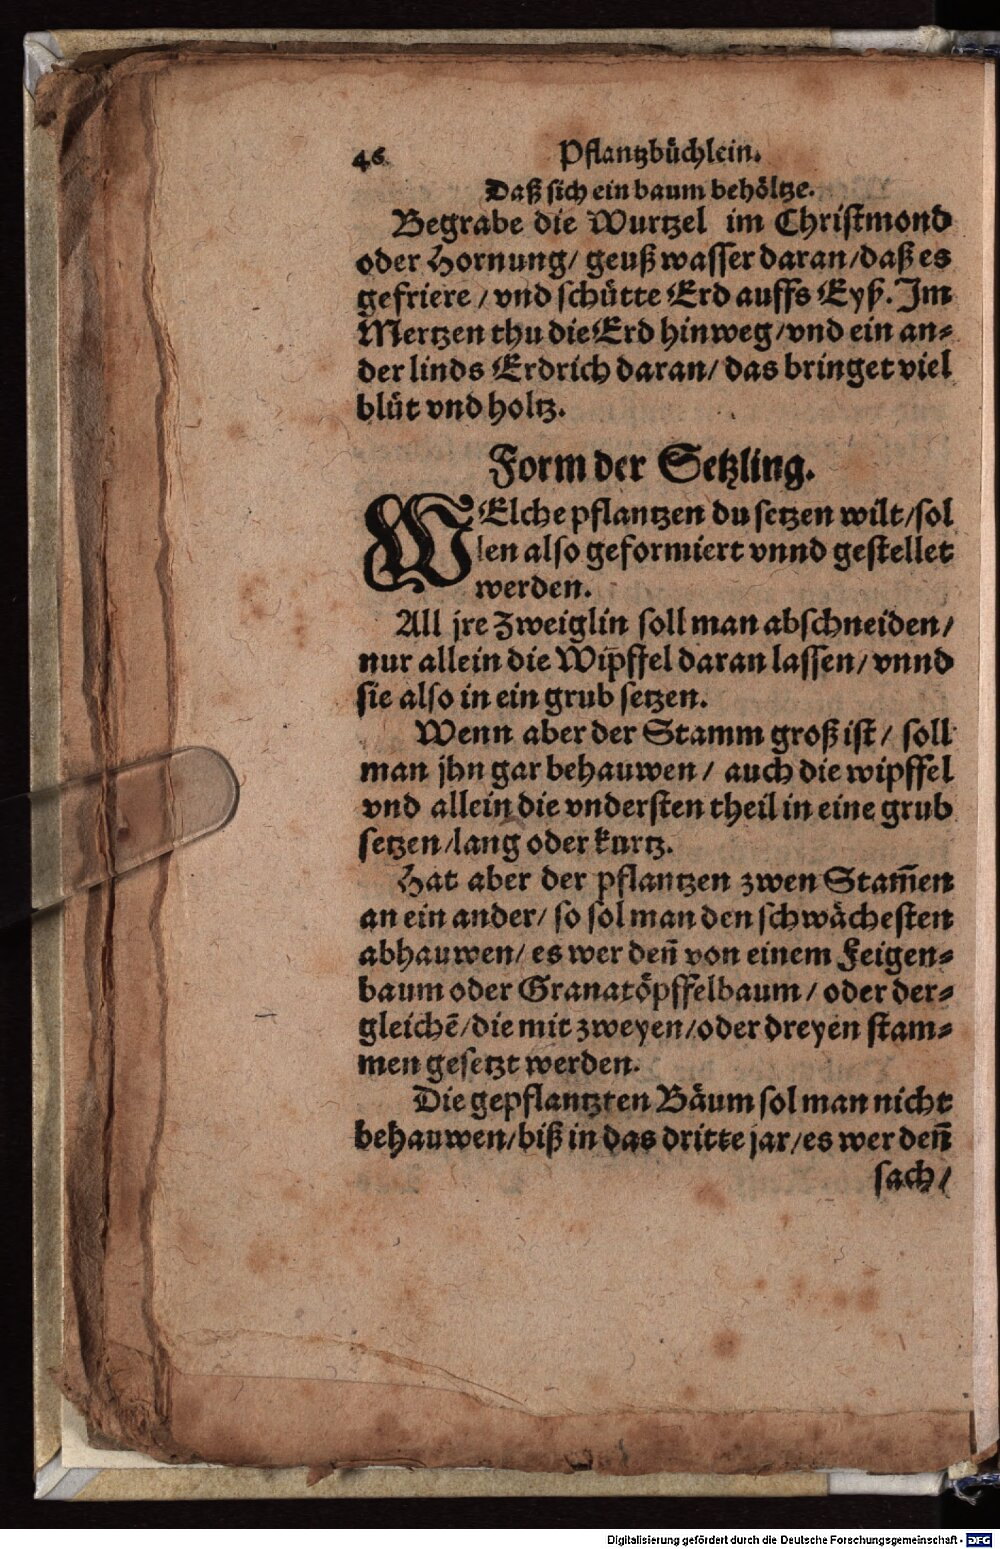 46 Pflantzbüchlein.
Daß sich ein baum behöltze.
Begrabe die Wurtzel im Christmond
oder Hornung/ geuß wasser daran/daß es
gefriere/ vnd schütte Erd auffs Eyß. Im
Mertzen thu die Erd hinweg/vnd ein an⸗
der linds Erdrich daran/ das bringet viel
blüt vnd holtz.
Form der Setzling.
WElche pflantzen du setzen wilt/sol
len also geformiert vnnd gestellet
werden.
All jre Zweiglin soll man abschneiden/
nur allein die Wipffel daran lassen/ vnnd
sie also in ein grub setzen.
Wenn aber der Stamm groß ist/ soll
man jhn gar behauwen/ auch die wipffel
vnd allein die vndersten theil in eine grub
setzen/lang oder kurtz.
Hat aber der pflantzen zwen Stam̃en
an ein ander/ so sol man den schwächesten
abhauwen/ es wer den̄ von einem Feigen⸗
baum oder Granatöpffelbaum/ oder der⸗
gleichē/die mit zweyen/oder dreyen stam⸗
men gesetzt werden.
Die gepflantzten Bäum sol man nicht
behauwen/biß in das dritte jar/es wer den̄
sach/
Digitalisierung gefördert durch die Deutsche Forschungsgemeinschaft - DFG